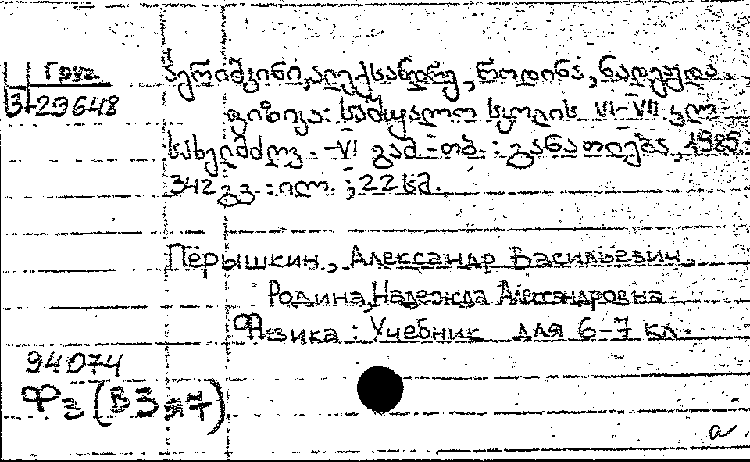 Груз.
3-29648
პერიშკინი, ალექსანდრე, როდინა, ნადეჟდა.
ფიზიკა: საშუალო სკოლის VI-VII კლ.
სახელმძღვ. - VI გამ. - თბ. : განათლება, 1985.
342 გვ. : ილ. ; 22 სმ.
Перышкин, Александр Васильевич.
Родина, Надежда Александровна
Физика : Учебник для 6-7 кл.
94074
Фз (В3
a